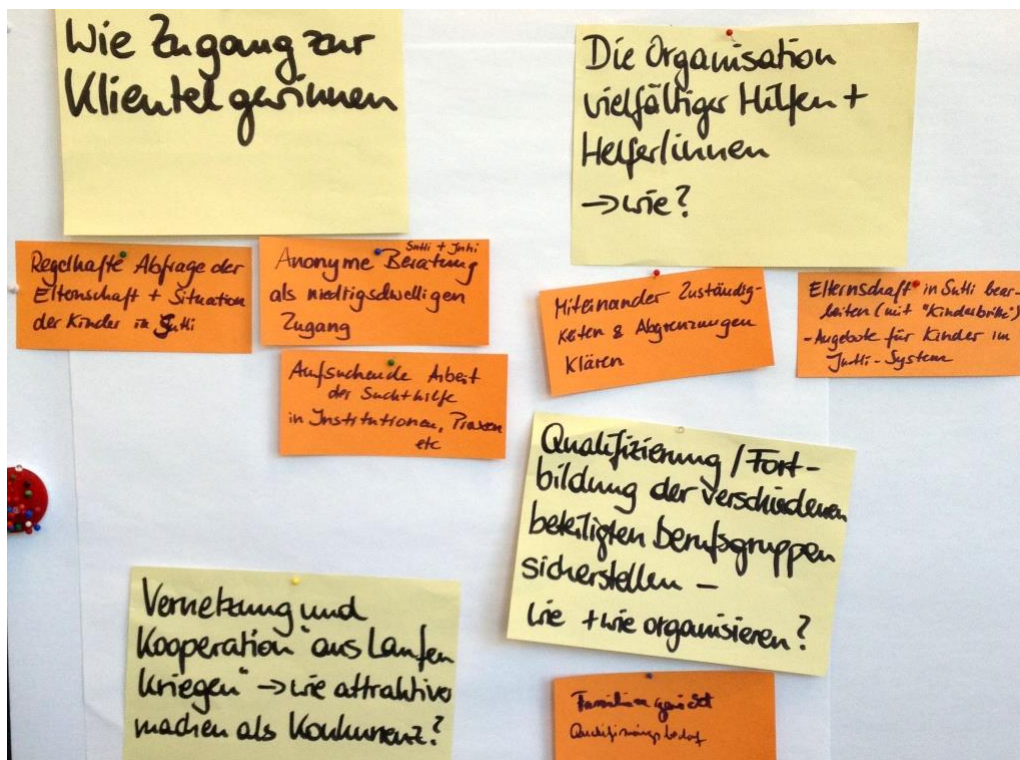 Wie Zugang zur
Klientel gewinnen
Regelhafte Abfrage der
Elternschaft + Situation
der Kinder in Suthi
Suthi + Juhi
Anonyme Beratung
als niedrigschwelligen
Zugang
Aufsuchende Arbeit
der Suchthilfe
in Institutionen, Praxen
etc
Die Organisation
vielfältiger Hilfen +
Helfer/innen
→ wie?
Miteinander Zuständig-
keiten & Abgrenzungen
klären
Elternschaft in Suthi bear-
beiten (mit "Kinderbrille")
- Angebote für Kinder im
-System
Qualifizierung / Fort-
bildung der verschiedenen
beteiligten Berufsgruppen
sicherstellen –
wie + wie organisieren?
Vernetzung und
Kooperation "ans Laufen
kriegen" → wie attraktiver
machen als Konkurrenz?
Qualifizierungsbedarf